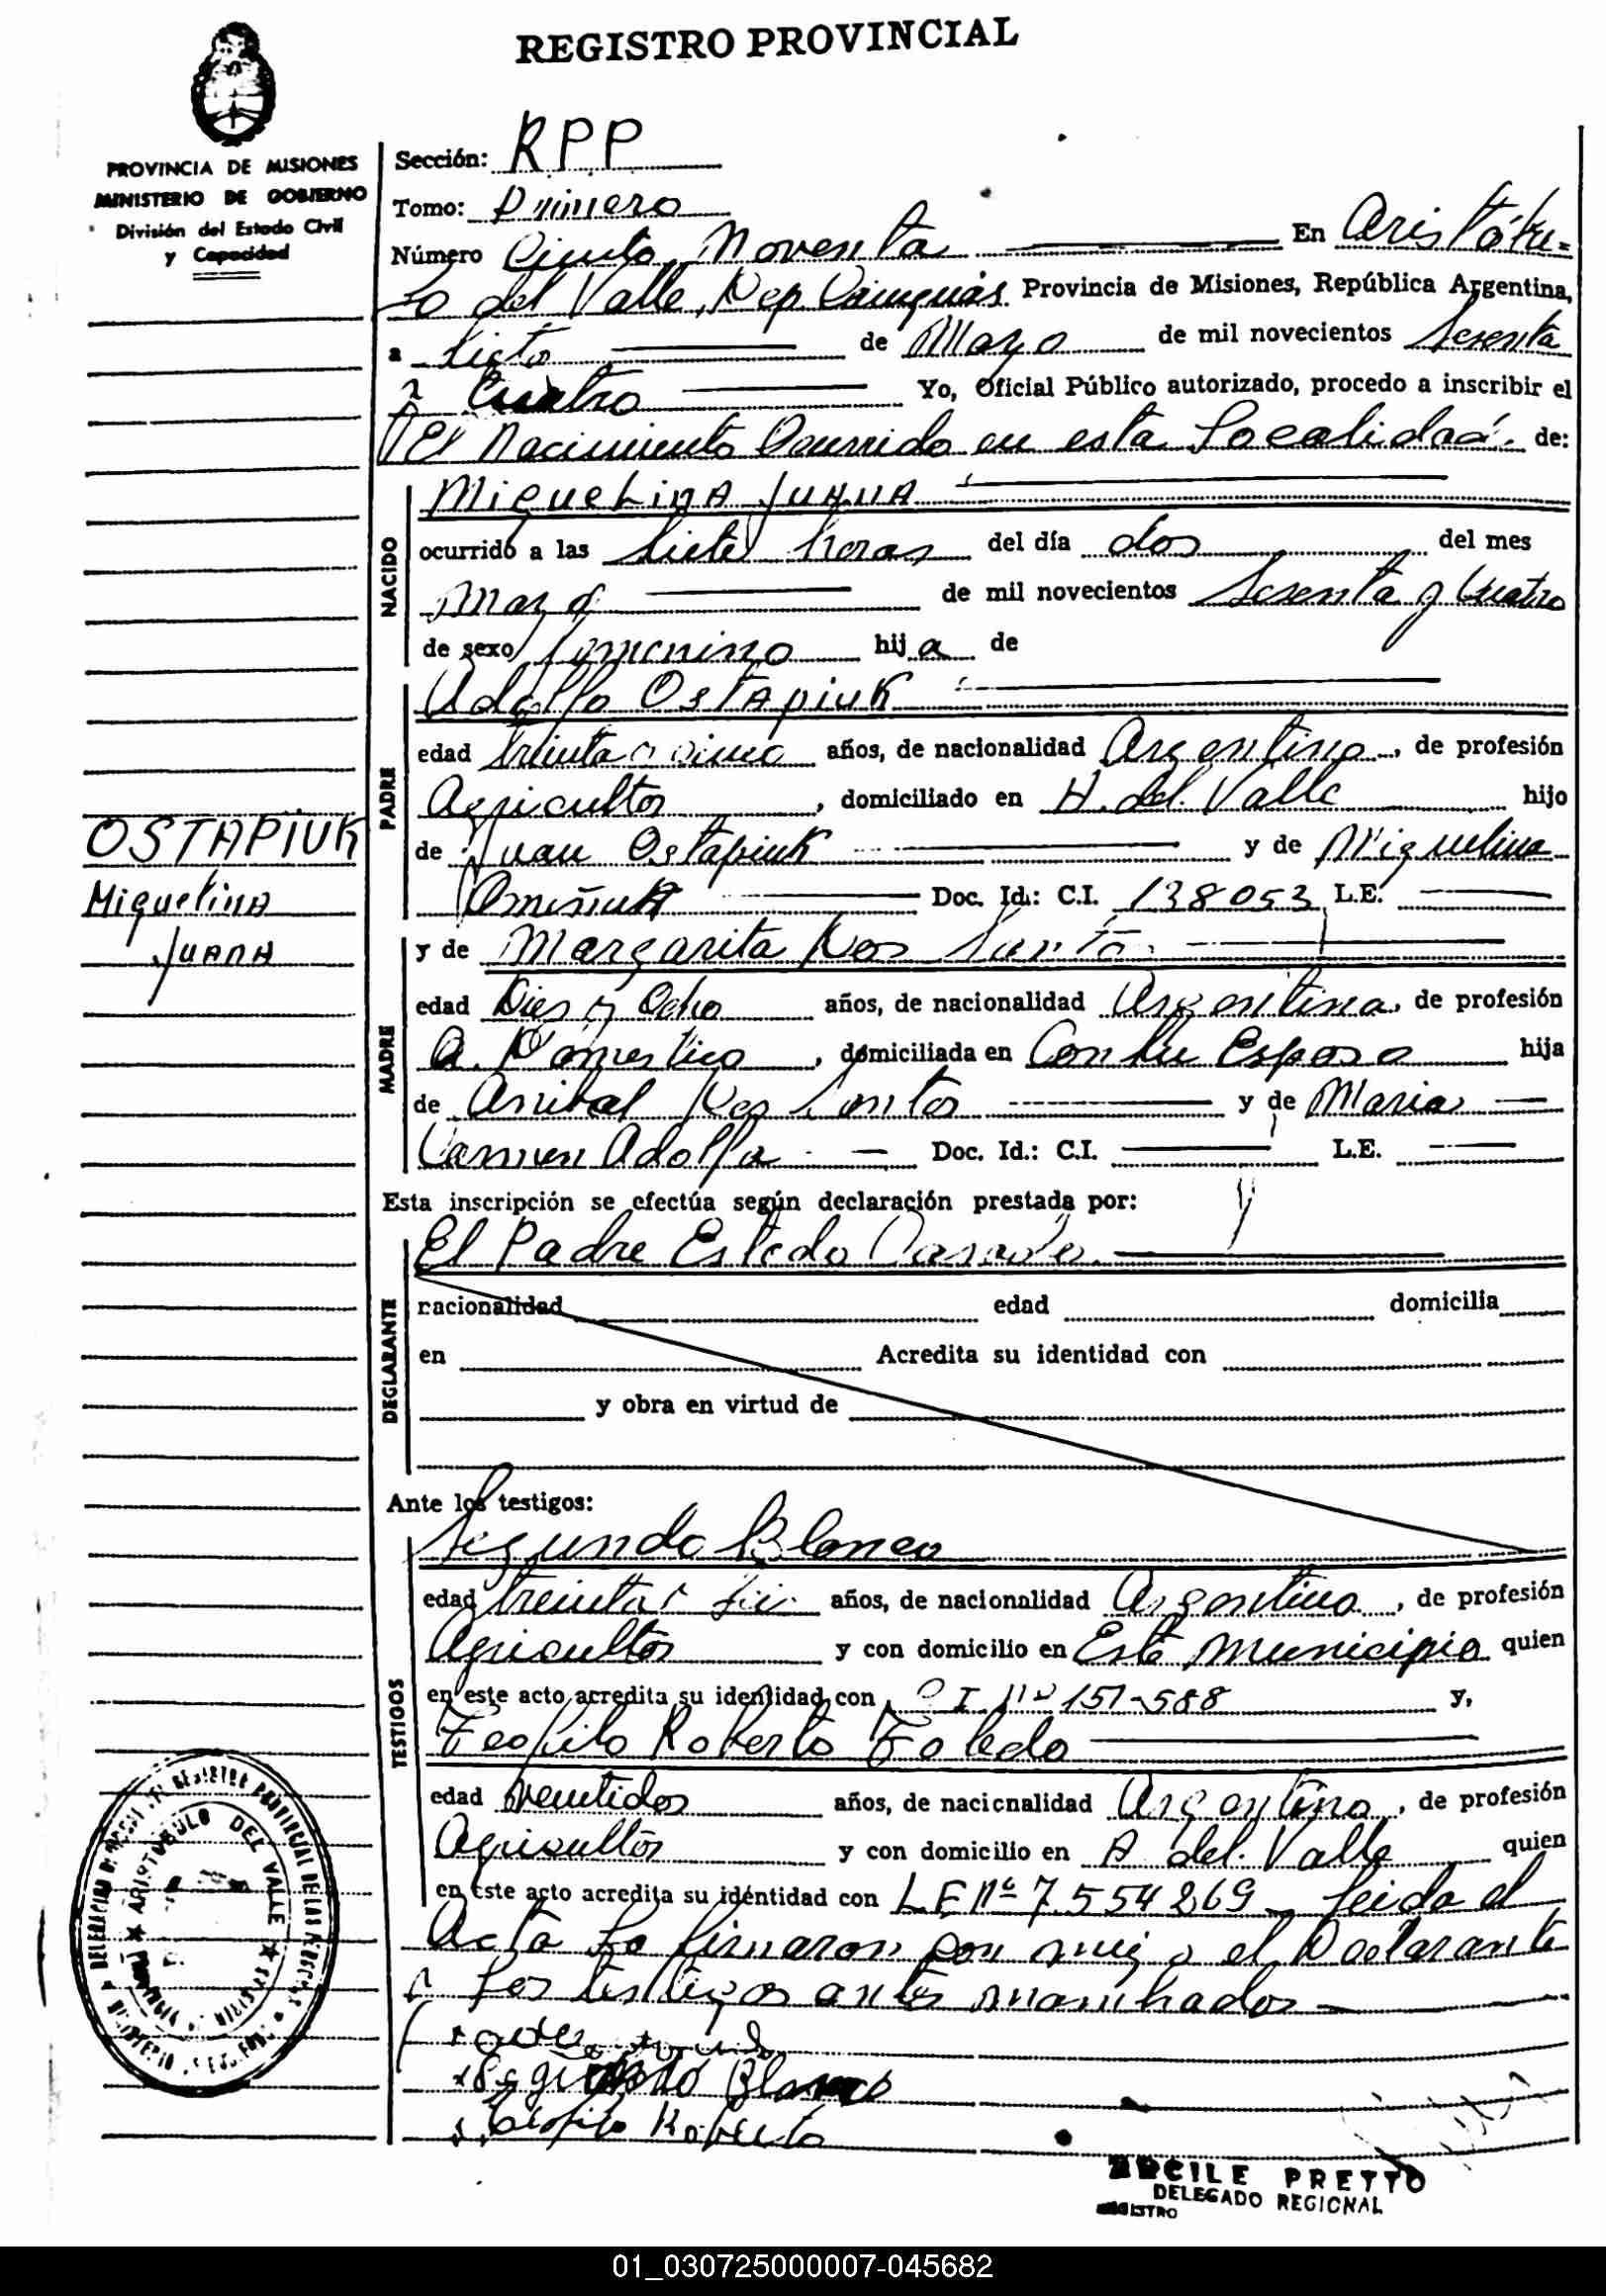 REGISTRO PROVINCIAL
PROVINCIA DE MISIONES
MINISTERIO DE GOBIERNO
División del Estado Civil
y Capacidad
Sección: RPP
Tomo: Primero
Número Ciento Noventa En Aristóbu=
lo del Valle, Dep Cainguás Provincia de Misiones, República Argentina,
a Siete de Mayo de mil novecientos Sesenta
y Cuatro Yo, Oficial Público autorizado, procedo a inscribir el
El Nacimiento Ocurrido en esta Localidad. de:
NACIDO
MiguelinA JuAnA
ocurrido a las Siete horas del día dos del mes
Mayo de mil novecientos Sesenta y Cuatro
de sexo femenino hija de
PADRE
Adolfo OstApiuk
edad treinta y cinco años, de nacionalidad Argentino, de profesión
Agricultor, domiciliado en A. del. Valle hijo
de Juan Ostapiuk y de Miguelina
Doc. Id.: C.I. 138053 L.E.
OSTAPIUK
MiguelinA
JuAnA
MADRE
y de Margarita Dos Santos
edad Dies y Ocho años, de nacionalidad Argentina, de profesión
Q. Domestico, domiciliada en Con su Esposo hija
de Anibal Dos Santos y de Maria
Carmen Adolfa Doc. Id.: C.I. L.E.
Esta inscripción se efectúa según declaración prestada por:
DECLARANTE
El Padre Estado Casado
nacionalidad edad domicilia
en Acredita su identidad con
y obra en virtud de
Ante los testigos:
TESTIGOS
Segundo Blanco
edad treinta y años, de nacionalidad Argentino, de profesión
Agricultor y con domicilio en Este Municipio quien
en este acto acredita su identidad con C I Nº 151-588 y,
Teofilo Roberto Toledo
edad Veintidos años, de nacionalidad Argentino, de profesión
Agricultor y con domicilio en A del. Valle quien
en este acto acredita su identidad con LE Nº 7.554269 Leida el
Acta Lo firmaron con migo el Declarante
y Los testigos antes
Segundo Blanco
Teofilo Roberto
REGISTRO PROVINCIAL DE LAS PERSONAS
ARISTOBULO DEL VALLE
ARCILE PRETTO
DELEGADO REGIONAL
REGISTRO
01_030725000007-045682